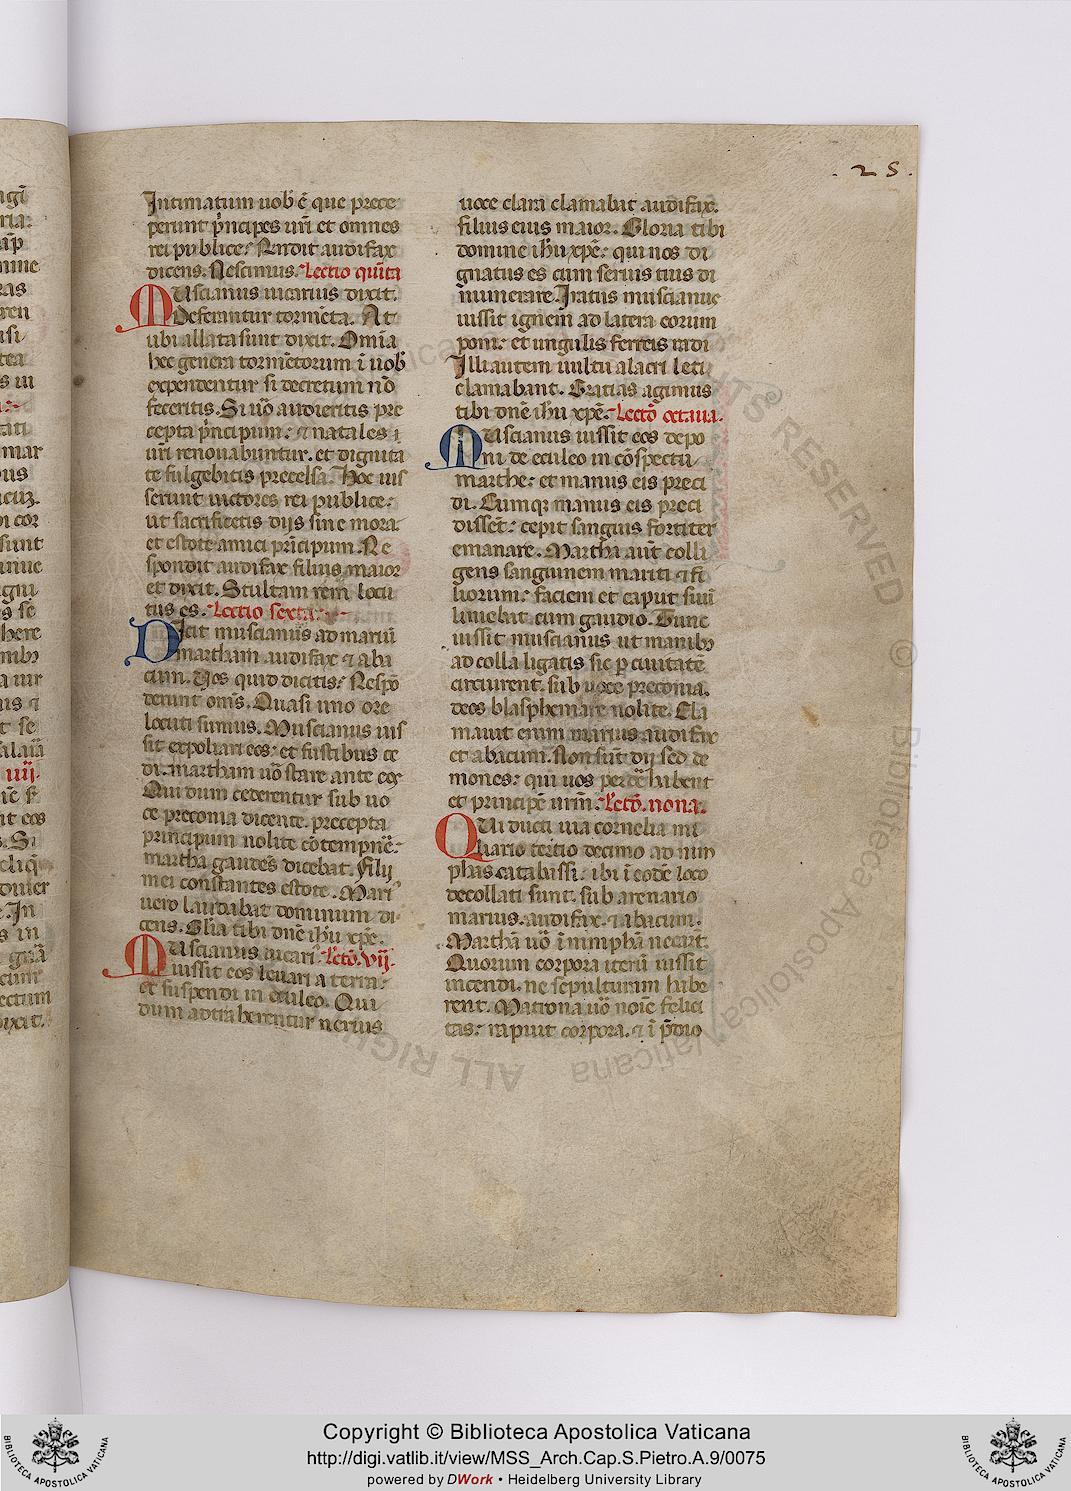 . 2 5 .
Intimatum uob̄ ē que prece
perunt p̄ncipes nr̄i et omnes
rei publice: Rn̄dit audifax
dicens. Nescimus. Lectio quīta
Muscianus uicarius dixit.
Deferantur tormēta. At
ubi allata sunt dixit. Omīa
hec genera tormētorum ī uob̄
expendentur si decretum nō
feceritis. Si uō audieritis pre
cepta p̄ncipum: ⁊ natales
ur̄i renouabuntur. et dignita
te fulgebitis precelsa. Hoc ius
serunt uictores rei publice:
ut sacrificetis diis sine mora
et estote amici prīcipum. Re
spondit audifax filius maior
et dixit. Stultam rem̄ locu
tus es. Lectio sexta.
Dicit muscianus ad mariū
martham audifax ⁊ aba
cum. Uos quid dicitis: Respō
derunt om̄s. Quasi uno ore
locuti sumus. Muscianus ius
sit expoliari eos: et fustibus ce
di. martham uō stare ante eos
Qui dum cederentur sub uo
ce preconia dicente. precepta
principum nolite cōtempn̄e:
martha gaudēs dicebat. Filij
mei constantes estote. Mari
uero laudabat dominum di
cens. Gl̄ia tibi dn̄e ih̄u xp̄e.
Muscianus uicari Lectō. vij.
iussit eos leuari a terra:
et suspendi in eculeo. Qui
dum adtraherentur neruis
uoce clara clamabat audifax.
filius eius maior. Gloria tibi
domine ih̄u xp̄e: qui nos di
gnatus es cum seruis tuis di
numerare. Iratus muscianus
iussit ignem ad latera eorum
poni: et ungulis ferreis radi
Illi autem uultu alacri leti
clamabant. Gratias agimus
tibi dn̄e ih̄u xp̄e. Lectō octaua.
Muscianus iussit eos depo
ni de eculeo in cōspectu
marthe: et manus eis preci
di. Cumq; manus eis preci
dissēt: cepit sanguis fortiter
emanare. Martha aūt colli
gens sanguinem mariti ⁊ fi
liorum: faciem et caput suū
liniebat cum gaudio. Tunc
iussit muscianus ut manibꝫ
ad colla ligatis sic ꝑ ciuitatē
circuirent. sub uoce preconia.
deos blasphemare nolite. Cla
mauit enim marius audifax
et abacum. Non sūt dij sed de
mones: qui uos perdē habent
et principē ur̄m. Lectō. nona.
Qui ducti uia cornelia mi
liario tertio decimo ad nim
phas catabassi: ibi ī eodē loco
decollati sunt. sub arenario
marius. audifax. ⁊ abacum.
Marthā uō ī nimphā necāt.
Quorum corpora iterū iussit
incendi. ne sepulturam habe
rent. Matrona uō noīe felici
tas: rapuit corpora. ⁊ ī p̄dio
ALL RIGHTS RESERVED © Biblioteca Apostolica Vaticana
Copyright © Biblioteca Apostolica Vaticana
http://digi.vatlib.it/view/MSS_Arch.Cap.S.Pietro.A.9/0075
powered by DWork • Heidelberg University Library
BIBLIOTECA APOSTOLICA VATICANA
BIBLIOTECA APOSTOLICA VATICANA